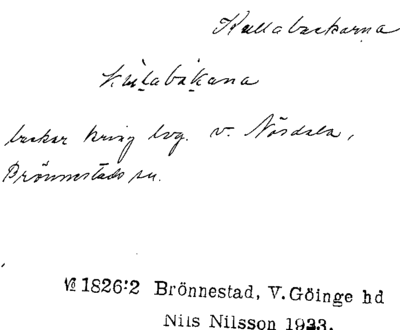 Kullabackarna
kulabakana
backar kring lvg. v. Nösdala,
Brönnestads sn.
№ 1826:2 Brönnestad, V. Göinge hd
Nils Nilsson 1933.